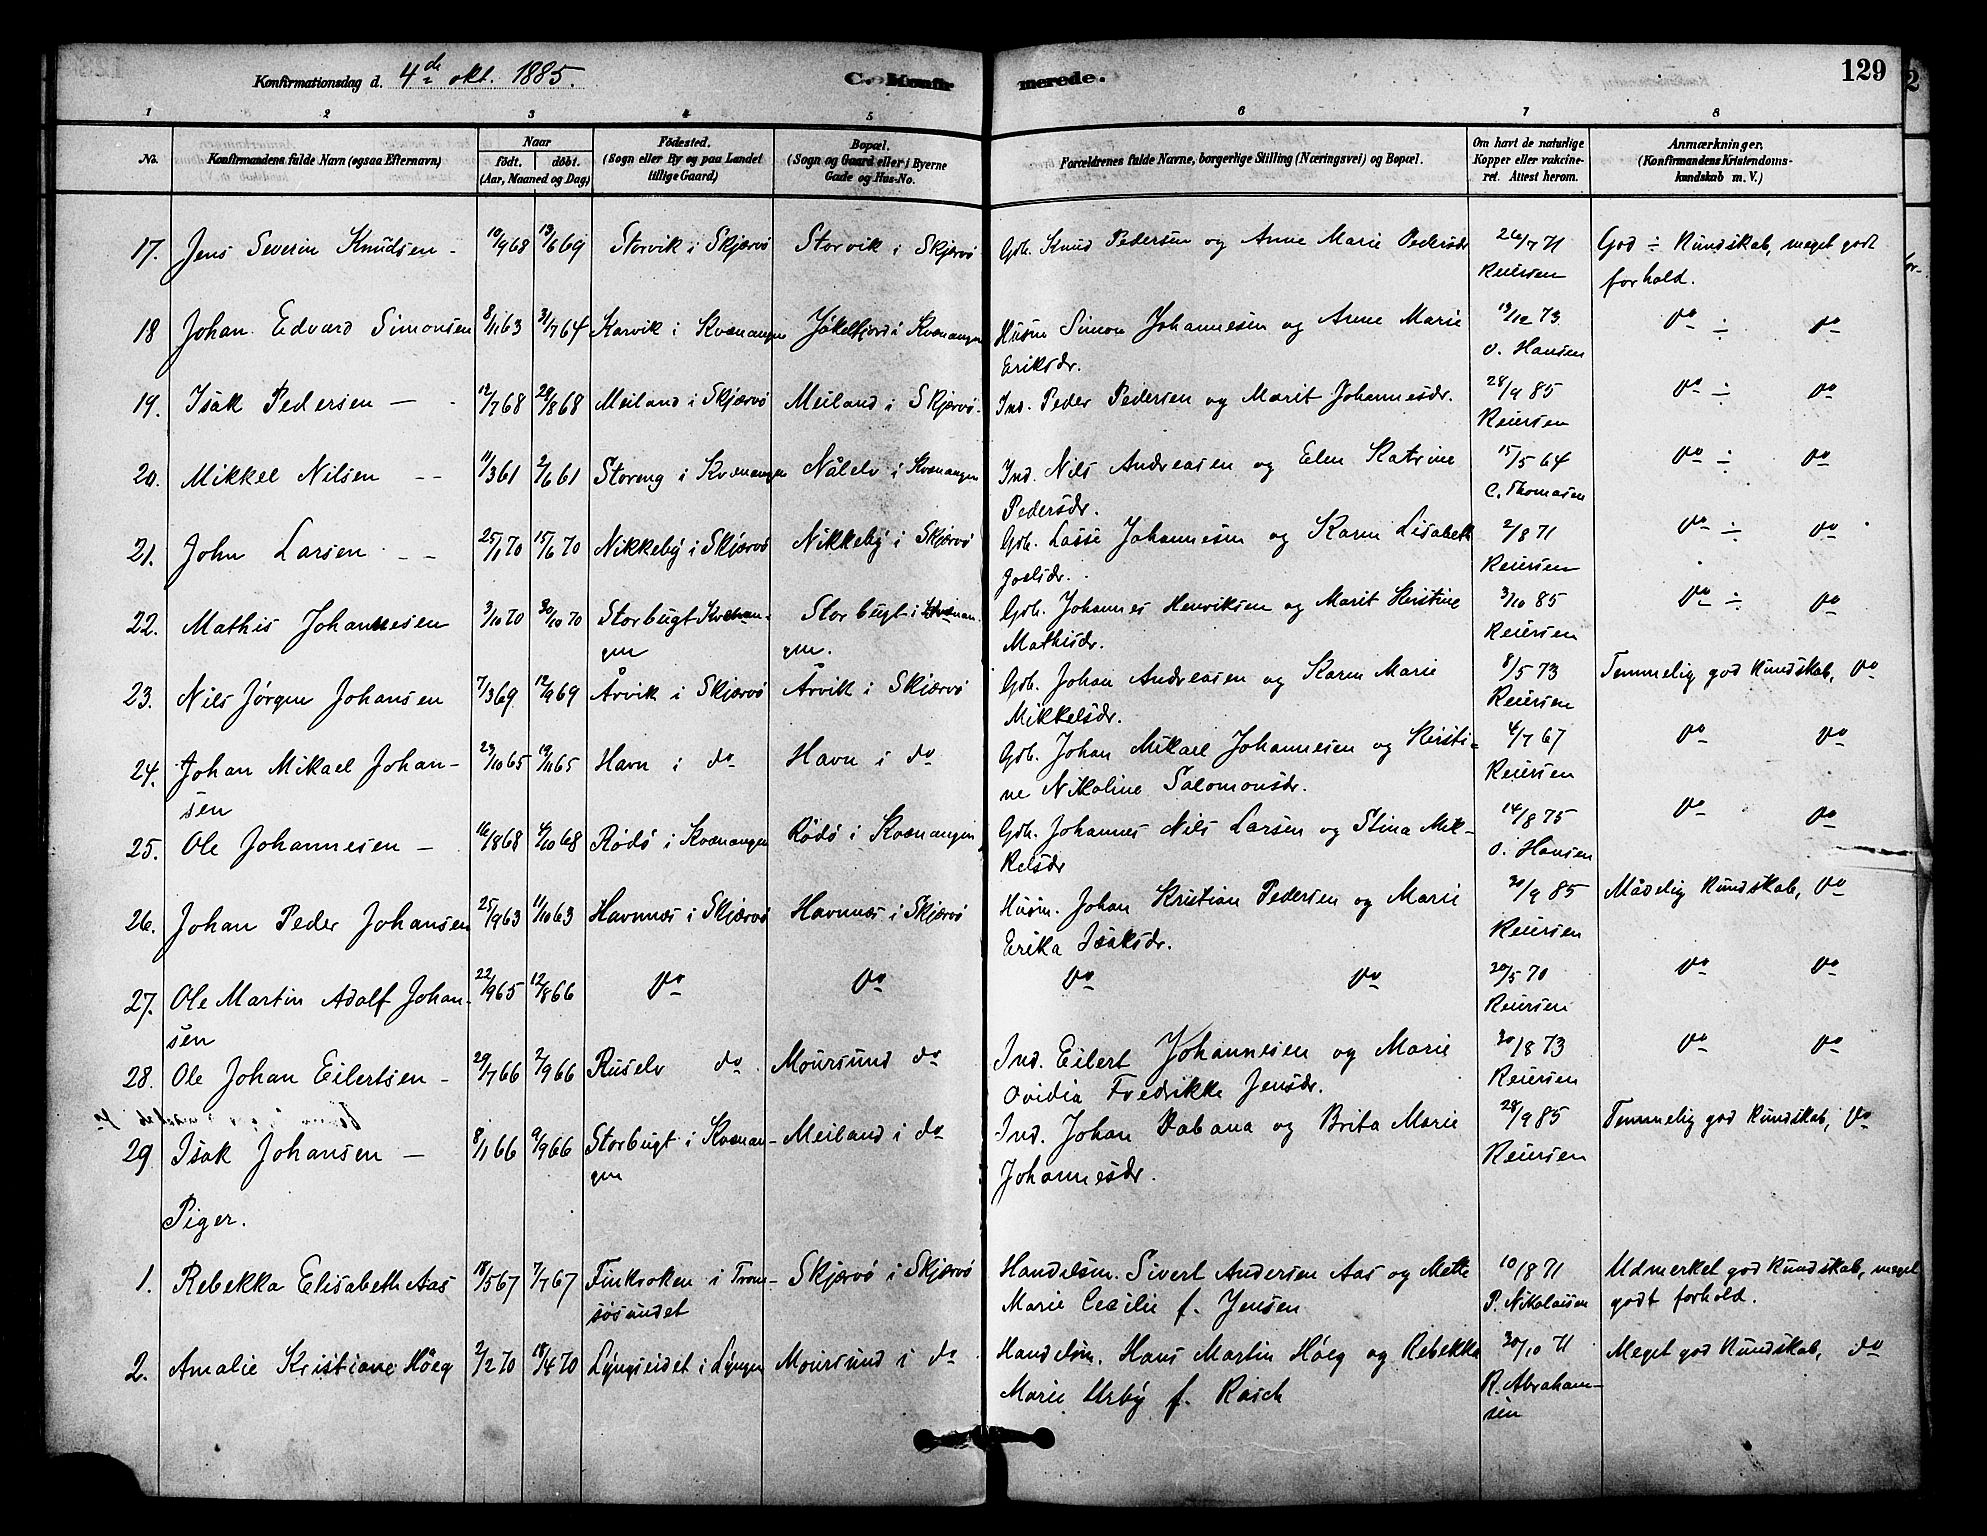 Konfirmationsdag d. 4de okt. 1885.
C. Konfirmerede.
129
1 2 3 4 5 6 7 8
No. Konfirmandens fulde Navn (ogsaa Efternavn) Naar født. døbt. (Aar, Maaned og Dag) Fødested. (Sogn eller By og paa Landet tillige Gaard) Bopæl. (Sogn og Gaard eller i Byerne Gade og Hus-No. Forældrenes fulde Navne, borgerlige Stilling (Næringsvei) og Bopæl. Om havt de naturlige Kopper eller vakcineret. Attest herom. Anmærkninger. (Konfirmandens Kristendomskundskab m. V.)
17. Jens Severin Knudsen - 10/9 68 13/6 69 Storvik i Skjærvö Storvik i Skjærvö Gdb. Knud Pedersen og Anne Marie Pedersdr 26/7 71 God ÷ Kundskab, meget godt
Reiersen forhold.
18 Johan Edvard Simonsen 8/11 63 31/7 64 Karvik i Kvænangen Jökelfjord i Kvænangen Husm Simon Johannesen og Anne Marie 19/12 73 Do ÷ Do
Eriksdr. O. Hansen
19. Isak Pedersen — 12/7 68 28/8 68 Meiland i Skjærvö Meiland i Skjærvö. Ind. Peder Pedersen og Marit Johannesdr. 28/9 85 Do ÷ Do
Reiersen
20. Mikkel Nilsen -- 11/3 61 2/6 61 Storeng i Kvænangen Nålelv i Kvænangen Ind. Nils Andreasen og Elen Katrine 15/5 64 Do ÷ Do
Pedersdr. C. Thomasen
21. John Larsen -- 25/1 70 15/6 70 Nikkeby i Skjærvö Nikkeby i Skjærvö Gdb. Lasse Johannesen og Karen Lisabeth 2/8 71 Do ÷ Do
Joelsdr. Reiersen
22. Mathis Johannesen 3/10 70 30/10 70 Storbugt Kvænan- Storbugt i Kvænan- Gdb. Johannes Henriksen og Marit Kristine 3/10 85 Do ÷ Do
gen gen. Mathisdr. Reiersen
23. Nils Jørgen Johansen 7/3 69 12/9 69 Årvik i Skjærvö Årvik i Skjærvö Gdb. Johan Andreasen og Karen Marie 8/5 73 Temmelig god Kundskab, Do
Mikkelsdr. Reiersen
24. Johan Mikael Johan- 23/10 65 19/11 65 Havn i do Havn i do Gdb. Johan Mikael Johannesen og Kristi- 4/7 67 Do Do
sen ne Nikoline Salomonsdr. Reiersen
25. Ole Johannesen — 16/8 68 4/10 68 Rödö i Kvænangen Rödö i Kvænangen Gdb. Johannes Nils Larsen og Stina Mik- 14/8 75 Do Do
kelsdr O. Hansen
26. Johan Peder Johansen 25/9 63 11/10 63 Havnnæs i Skjærvö Havnnæs i Skjærvö Husm. Johan Kristian Pedersen og Marie 30/9 85 Mådelig Kundskab, Do
Erika Isaksdr. Reiersen
27. Ole Martin Adolf Johan- 22/9 65 12/8 66 Do Do Do Do 20/5 70 Do Do
sen Reiersen
28. Ole Johan Eilertsen - 29/7 66 2/9 66 Ruselv do. Moursund do Ind. Eilert Johannesen og Marie 30/8 73 Do Do
Ovidia Fredrikke Jensdr. Reiersen
29 Isak Johansen — 8/1 66 9/9 66 Storbugt i Kvænan- Meiland i do Ind. Johan Dabana og Brita Marie 28/9 85 Temmelig god Kundskab, Do
gen Johannesdr. Reiersen
Piger.
1. Rebekka Elisabeth Aas 18/5 67 7/7 67 Finkroken i Trom- Skjærvö i Skjærvö Handelsm. Sivert Andersen Aas og Mette 10/8 71 Udmerket god Kundskab, meget
sösundet Marie Cecilie f. Jensen P. Nikolaisen godt forhold.
2. Amalie Kristiane Höeg 2/2 70 18/4 70 Lyngseidet i Lyngen Moursund i do Handelsm. Hans Martin Höeg og Rebekka 30/10 71 Meget god Kundskab, do
Marie Urby f. Rasch R. Abraham-
sen